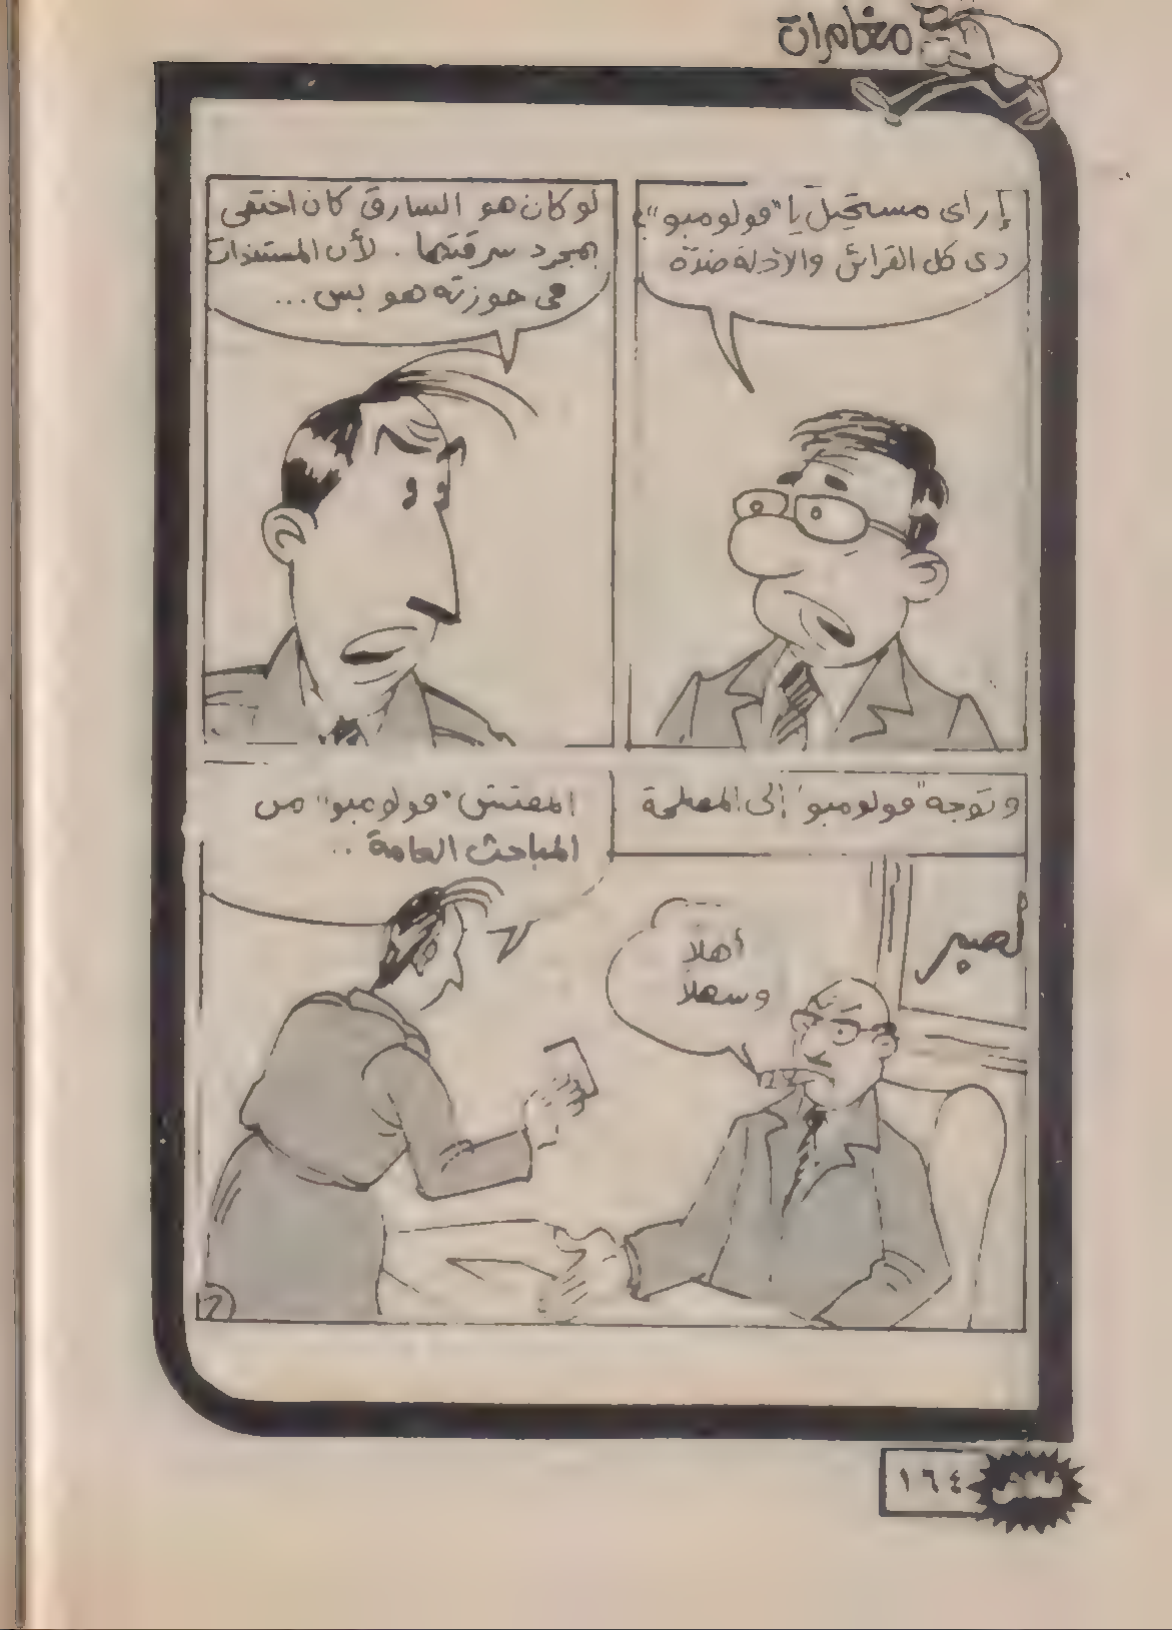 مغامرات
إزاى مستحيل يا "فولومبو"؟
دى كل القرائن والأدلة ضدّه
لو كان هو السارق كان اختفى
بمجرد سرقتها. لأن المستندات
فى حوزته هو بس...
وتوجه "فولومبو" إلى المصلحة
المفتش "فولومبو" من
المباحث العامة..
أهلاً
وسهلاً
لصبر
2
١٦٤